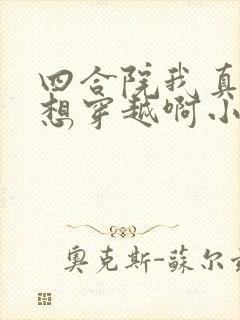 四合院我真
想穿越啊小
奥克斯-蘇尔